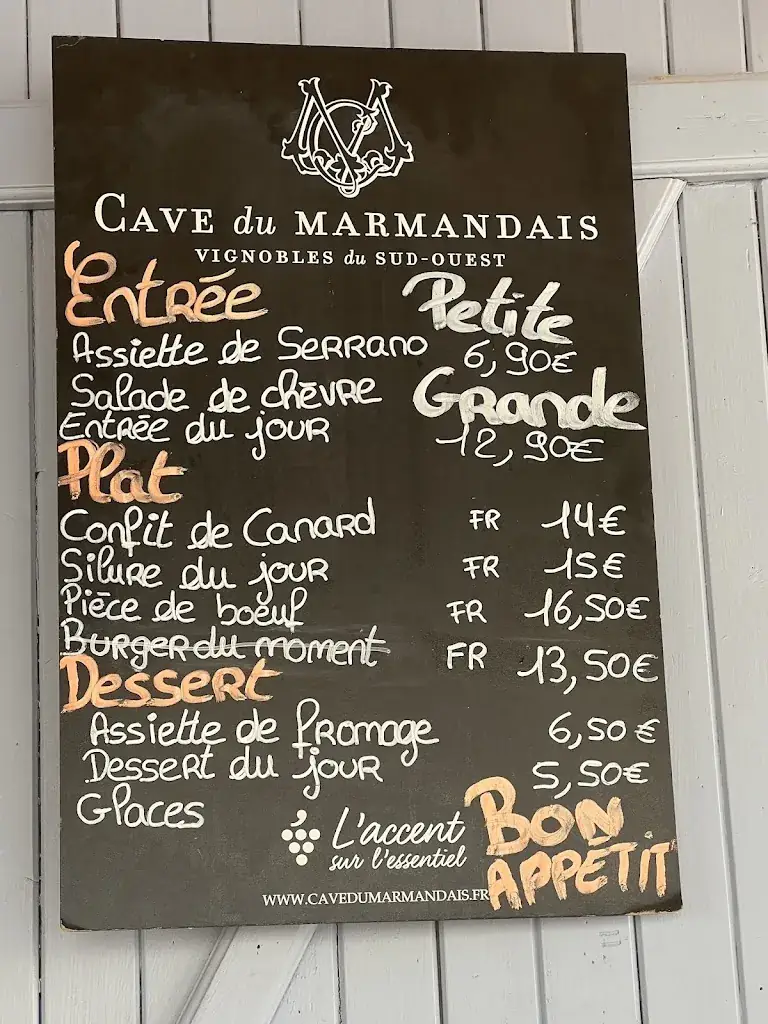 CAVE du MARMANDAIS
VIGNOBLES du SUD-OUEST
Entrée Petite
Assiette de Serrano 6,90€
Salade de chèvre Grande
Entrée du jour 12,90€
Plat
Confit de Canard FR 14€
Silure du jour FR 15€
Pièce de boeuf FR 16,50€
Burger du moment FR 13,50€
Dessert
Assiette de fromage 6,50€
Dessert du jour 5,50€
Glaces
L'accent
sur l'essentiel
BON
APPÉTIT
WWW.CAVEDUMARMANDAIS.FR